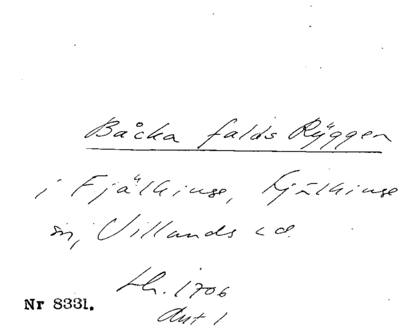 Båcka falds Rÿggen
i Fjälkinge, Fjälkinge
sn, Villands hd.
Lh. 1706
Ant 1
Nr 8331.